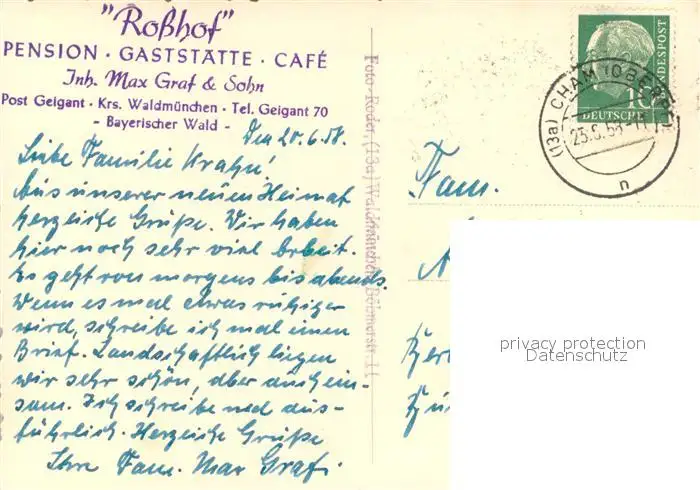 "Roßhof"
PENSION · GASTSTÄTTE · CAFÉ
Inh. Max Graf & Sohn
Post Geigant · Krs. Waldmünchen · Tel. Geigant 70
- Bayerischer Wald -
Den 20.6.58.
Liebe Familie Krahn!
Aus unserer neuen Heimat
herzliche Grüße. Wir haben
hier noch sehr viel Arbeit.
Es geht von morgens bis abends.
Wenn es mal etwas ruhiger
wird, schreibe ich mal einen
Brief. Landschaftlich liegen
wir sehr schön, aber auch ein-
sam. Ich schreibe noch aus-
führlich. Herzliche Grüße
Ihre Fam. Max Graf.
Foto-Roder, (13a) Waldmünchen, Böhmerstr. 11
DEUTSCHE BUNDESPOST
10
(13a) CHAM (OBERPF)
n
Fam.
privacy protection
Datenschutz